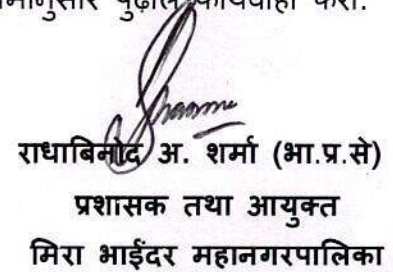 पुढील कार्यवाही करा.
राधाबिनोद अ. शर्मा (भा.प्र.से)
प्रशासक तथा आयुक्त
मिरा भाईंदर महानगरपालिका